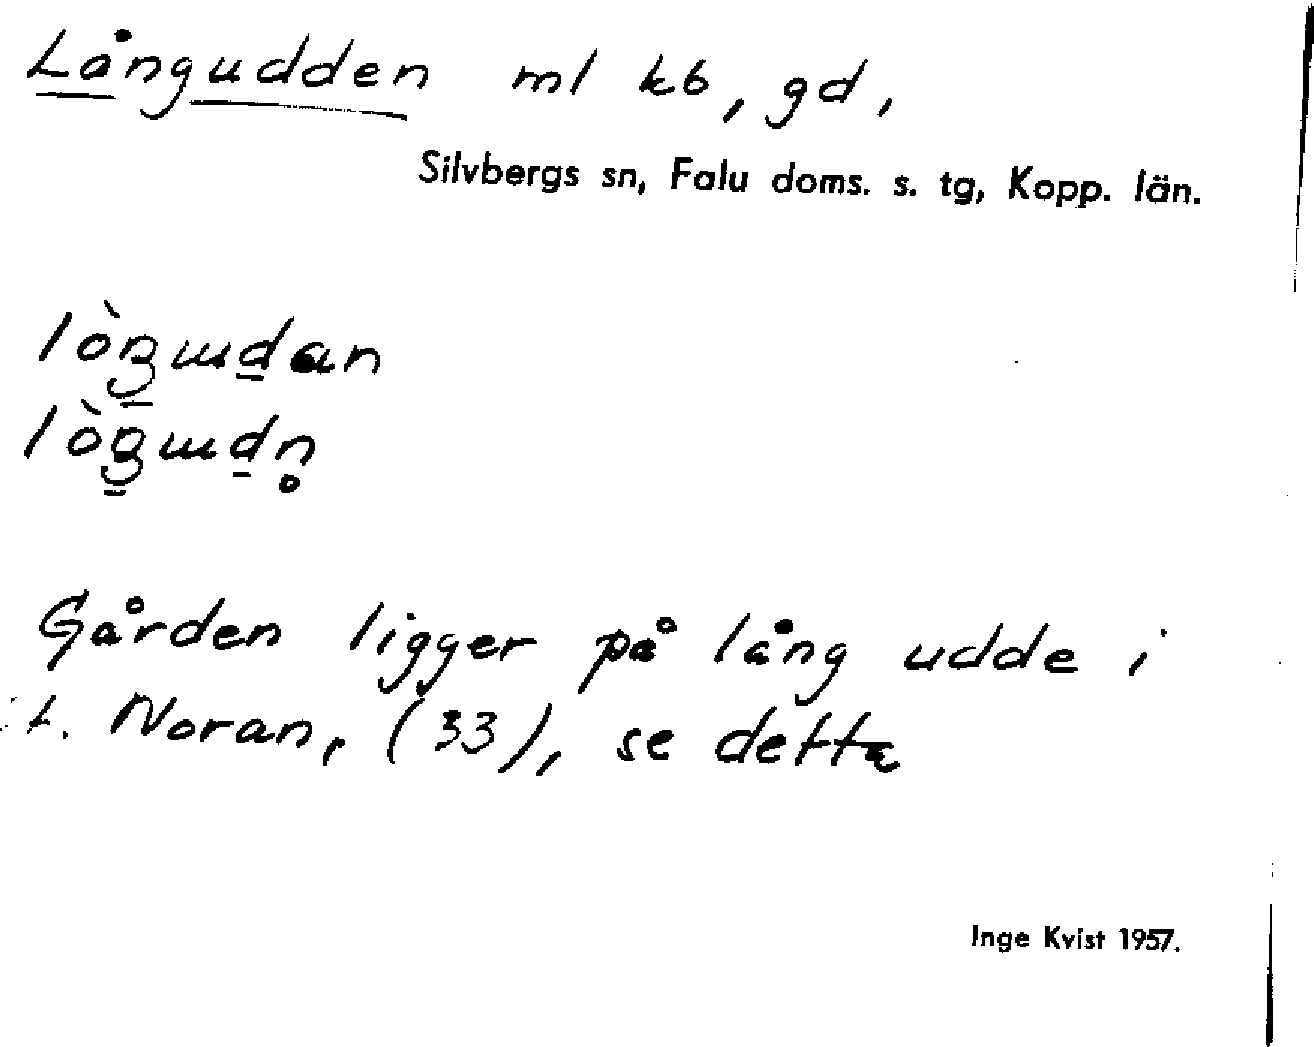 Långudden ml kb, gd,
Silvbergs sn, Falu doms. s. tg, Kopp. län.
Gården ligger på lång udde i
t. Noran, (33), se detta
Inge Kvist 1957.